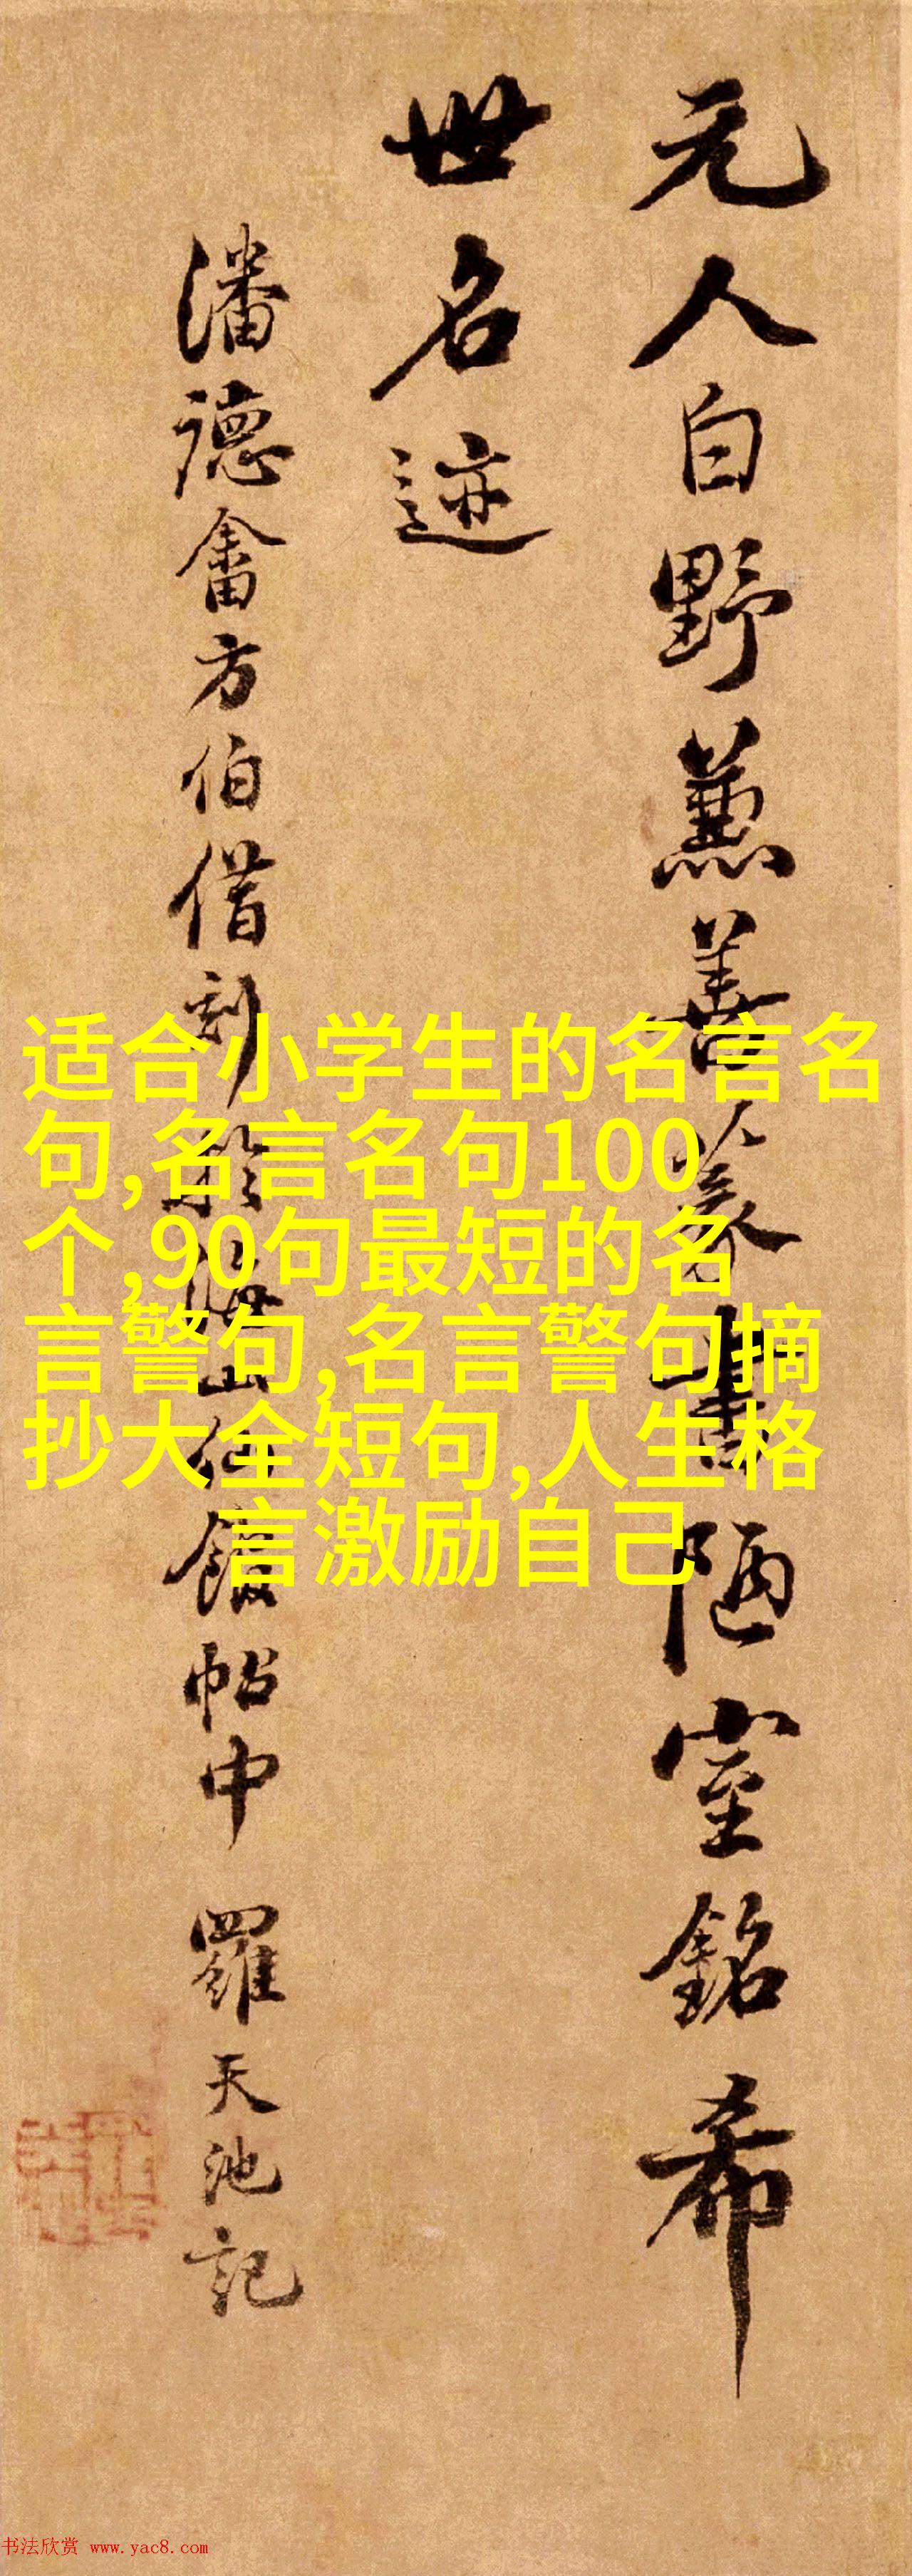 元人白野兼善篆書陋室銘希
世名迹
潘德畬方伯借刻於海山仙館帖中 羅天池記
适合小学生的名言名
句,名言名句100
个,90句最短的名
言警句,名言警句摘
抄大全短句,人生格
言激励自己
书法欣赏 www.yac8.com